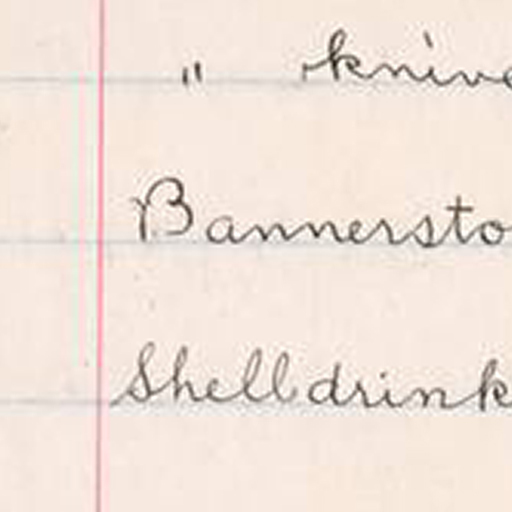 " knive
Bannersto
Shell drink